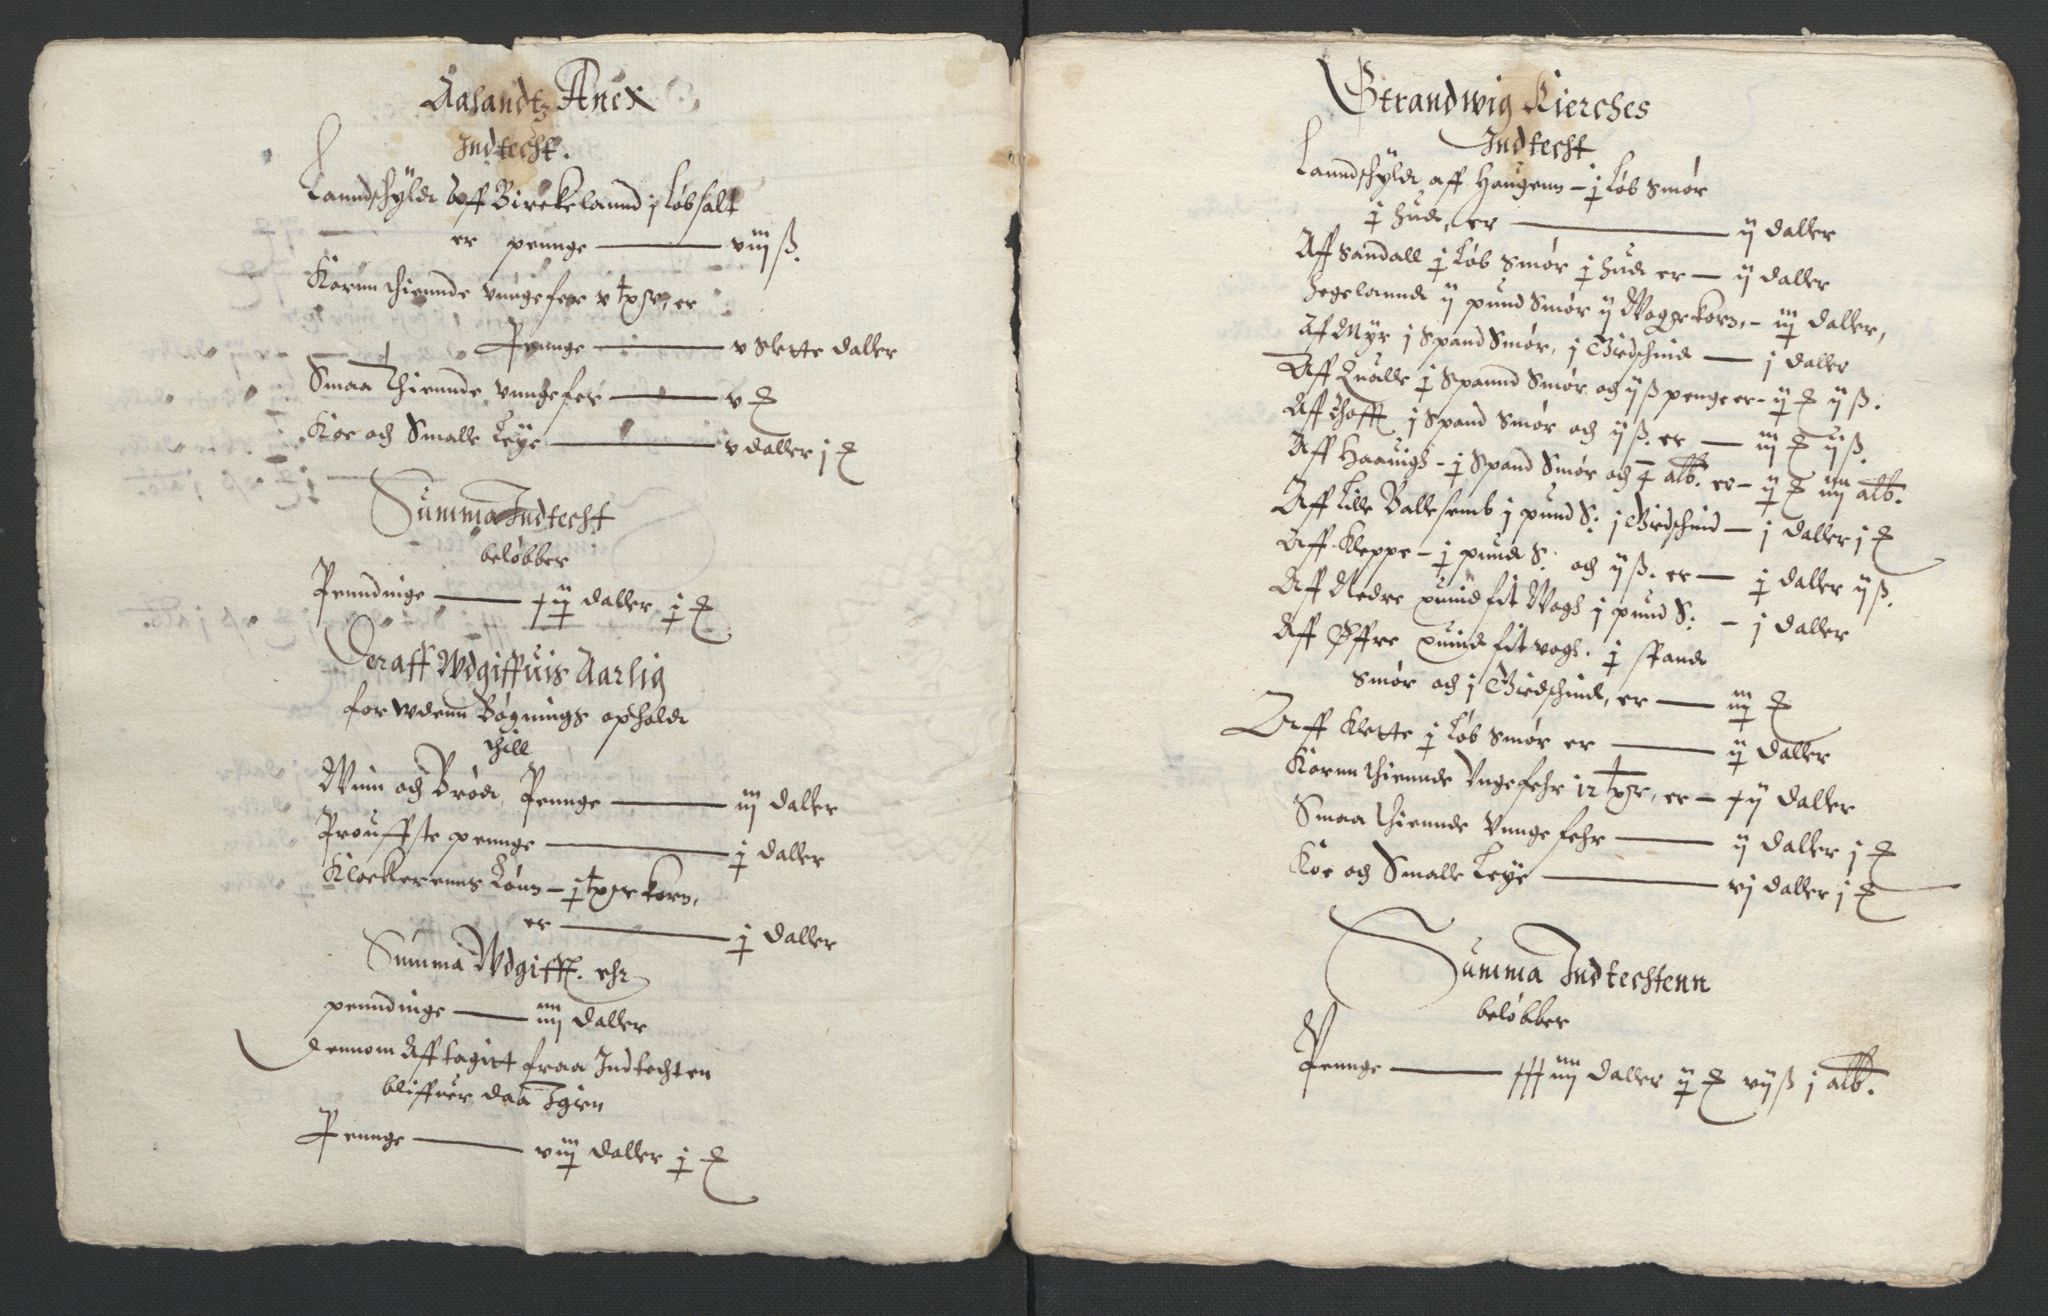 Aasandtz Anex
Indtecht.
Lanndschyldt aff Birckelannd j Løb salt
er pennge — viij ß.
Kornn thiennde vnngefer v tpr, er
Pennge — v slette daller
Smaa thiennde vnngefer — v
Koe och Smalle Leÿe — v daller j
Summa Indtecht
beløbber
Penndinge — daller
Deraff Wdgiffuis Aarlig
for wdenn Bøgnings ophold
thill
Wiin och Brød, Pennge — iij daller
Prouffste pennge — daller
Klockerenns Lønn — korn,
er — daller
Summa Wdgifft. ehr
penndinge — iiij daller
dennom Afftagitt fraa Indtechten
bliffuer daa Igien
Pennge — daller
Strandwig Kierches
Indtecht
Lanndschyldt aff Haugenn — Løb Smør
hud, er — ij daller
Aff Sandall Løb Smør hud er — ij daller
Hegelannd ij pund Smør ij Wogge korn, — daller,
Af Myr j Spand Smør, j Giedschind — j daller
Aff Qualle Spannd Smør och ij ß penge er — ij ß.
Aff thofft j Spand Smør och ij ß. er — iij ij ß
Aff Haauigh — Spand Smør och alb. er — iiij alb.
Aff Lille Ballesemb j pund S: j Giedschind — j daller j
Aff Kleppe — pund S: och ij ß. er — daller ij ß.
Aff Nedre fit Wogh j pund S: — j daller
Aff Øffre fit vogh. spand
Smør och j Giedschind, er —
Aff Klette Løb Smør er — daller
Kornn thiennde Vngefehr 12 tpr, er — daller
Smaa thiennde Vnngefehr — ij daller j
Koe och Smalle Leÿe — vj daller j
Summa Indtechtenn
beløbber
Pennge — daller vij ß j alb.